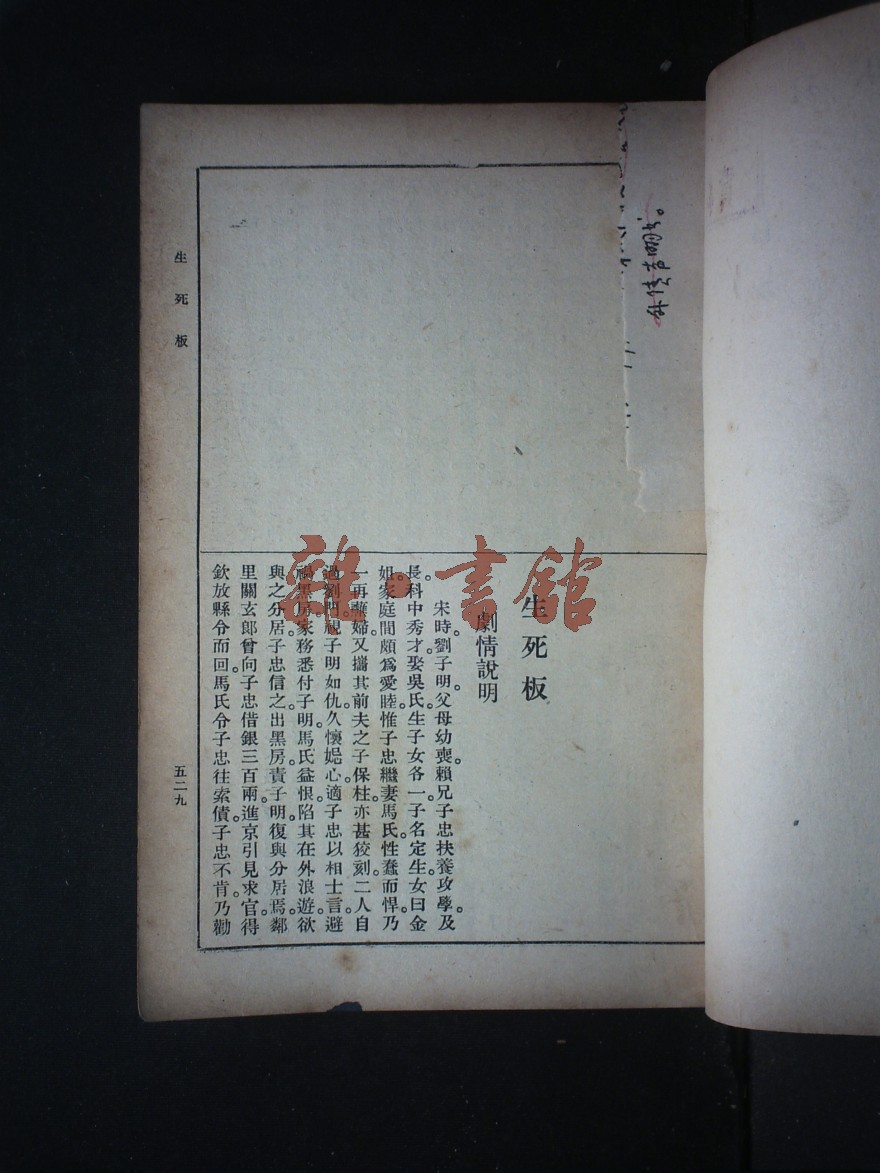 生死板
劇情說明
宋時。劉子明。父母幼喪。賴兄子忠扶養攻學。及
長。科中秀才。娶吳氏。生子女各一。子名定生。女曰金
姐。家庭間頗爲愛睦。惟子忠繼妻馬氏。性蠢而悍。乃
一再醮婦。又攜其前夫之子保柱。亦甚狡刻。二人自
過劉門。視子明如仇。久懷妬心。適子忠以相士言。避
禍黑房。家務悉付子明。馬氏益恨。陷其在外浪遊。欲
與之分居。子忠信之。出黑房。責子明。復與分居焉。鄰
里關玄郎曾向子忠借銀三百兩。進京引見求官。得
欽放縣令而回。馬氏令子忠往索債。子忠不肯。乃勸
生死板
五二九
雜·書館